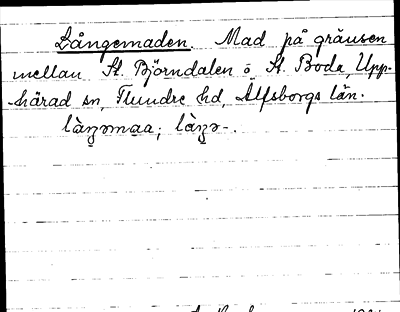 Långemaden. Mad på gränsen
mellan St. Björndalen o. St. Boda, Upp-
-härad sn, Flundre hd, Älfsborgs län.
làŋəmaa; làŋə-.